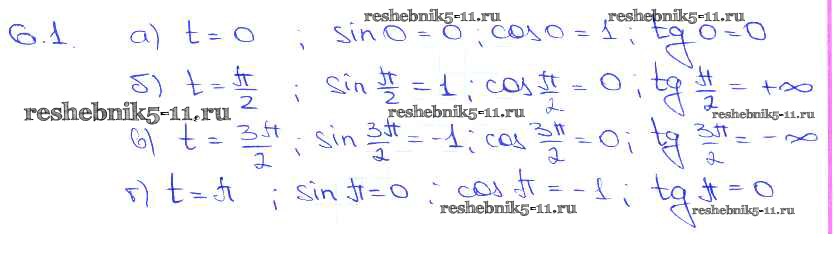 reshebnik5-11.ru reshebnik5-11.ru
6.1. а) t = 0 ; sin 0 = 0 ; cos 0 = 1 ; tg 0 = 0
б) t = π/2 ; sin π/2 = 1 ; cos π/2 = 0 ; tg π/2 = +∞
reshebnik5-11.ru reshebnik5-11.ru reshebnik5-11.ru
в) t = 3π/2 ; sin 3π/2 = -1 ; cos 3π/2 = 0 ; tg 3π/2 = -∞
г) t = π ; sin π = 0 ; cos π = -1 ; tg π = 0
reshebnik5-11.ru reshebnik5-11.ru